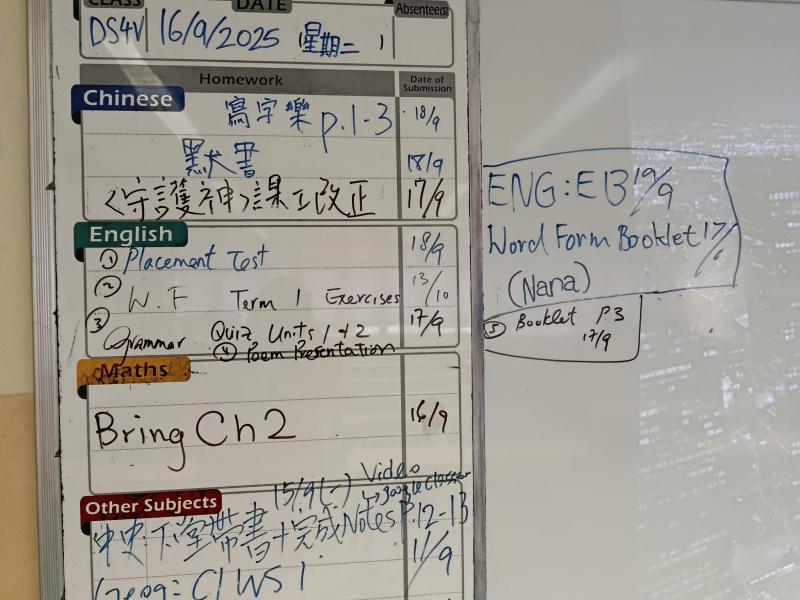 CLASS DATE Absentee(s)
DS4V 16/9/2025 (星期二)
Homework Date of Submission
Chinese
寫字樂 p.1-3 18/9
默書 18/9
<守護神>課工改正 17/9
English
① Placement Test 18/9
② W.F Term 1 Exercises 13/10
③ Grammar Quiz Units 1 & 2 17/9
④ Poem Presentation
Maths
Bring Ch2 16/9
Other Subjects
15/9(一) Video
↳ google classroom
中史:下堂帶書+完成Notes P.12-13
11/9
Geog: C1 WS 1
ENG: EB 19/9
Word Form Booklet 17/
(Nana)
⑤ Booklet P3
17/9